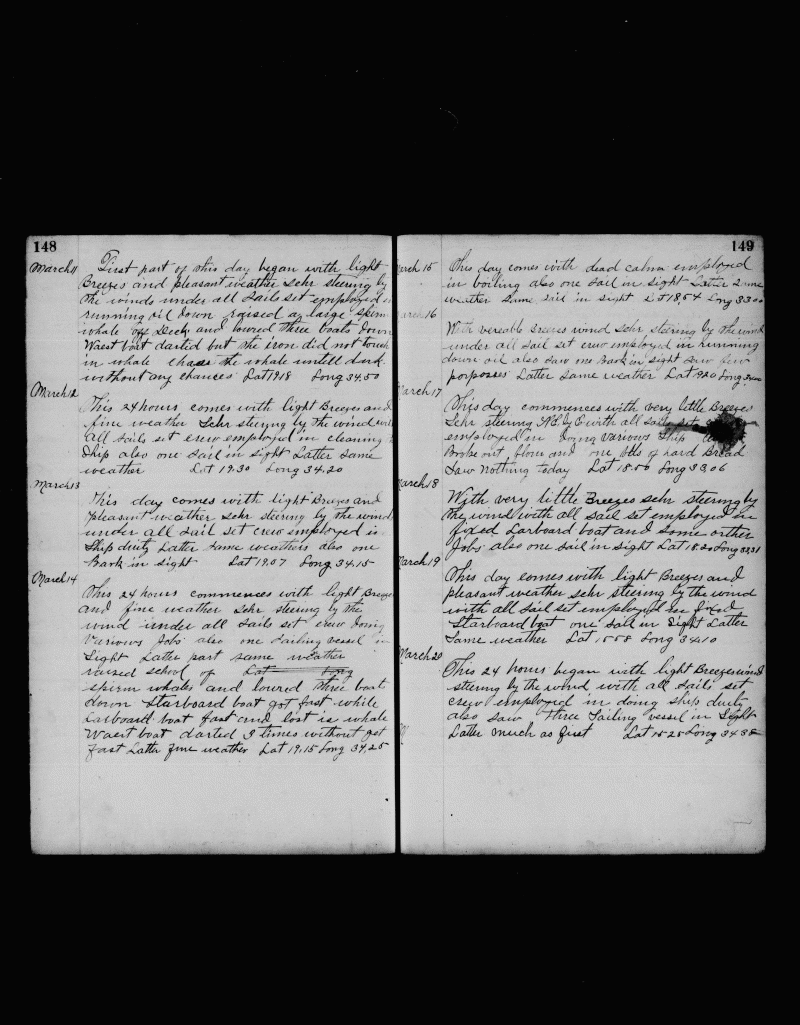 148
March 11 First part of this day began with light
Breezes and pleasant weather Schr steering by
the winds under all Sails set employed
running oil down raised a large Sperm
whale off Deck and lowred three boats down
Waest boat darted but the iron did not touch
in whale chase the whale untell dark
without any chances Lat 19.18 Long 34.50
March 12 This 24 hours comes with light Breezes and
fine weather Schr steeryng by the wind
all Sails set crew employed in cleaning
Ship also one Sail in sight Latter Same
weather Lat 19.30 Long 34.20
March 13 This day comes with light Breezes and
pleasant weather schr steering by the wind
under all Sail set crew employed in
Ship duity Latter Same weathers also one
Bark in sight Lat 19.07 Long 34.15
March 14 This 24 hours commences with light Breezes
and fine weather Schr steering by the
wind under all Sails set crew doing
Variovus Jobs also one Sailing vessel in
Sight Latter part same weather
raised school of Lat Long
spirm whales and lowred three boat
down Starboard boat got fast while
Larboard boat fast and lost is whale
Waest boat darted 3 times without get
fast Latter fine weather Lat 19.15 Long 34.25
149
March 15 This day comes with dead calm employed
in boiling also one Sail in sight Latter Same
weather Same Sail in sight Lat 18.54 Long 33.00
March 16 With vereable breezes wind Schr steering by the wind
under all Sail set crew employed in running
down oil also saw one Bark in sight Saw few
porposses Latter Same weather Lat 19.20 Long
March 17 This day commences with very little Breezes
Schr steering N.E. by E with all Sails set
employed in doing Variovus Ship
Broke out flour and one bbls of hard Bread
Saw nothing today Lat 18.50 Long 33.06
March 18 With very little Breezes schr steering by
the wind with all Sail set employed in
fixed Larboard boat and Some orther
Jobs also one Sail in Sight Lat 18.20 Long 33.31
March 19 This day comes with light Breezes and
pleasant weather schr steering by the wind
with all Sail set employed in fixed
Starboard boat one Sail in Sight Latter
Same weather Lat 15.58 Long 34.10
March 20 This 24 hours began with light Breezes wind
steering by the wind with all Sails set
crew employed in doing ship duity
also Saw three Sailing vessel in Sight
Latter much as first Lat 15.25 Long 34.38